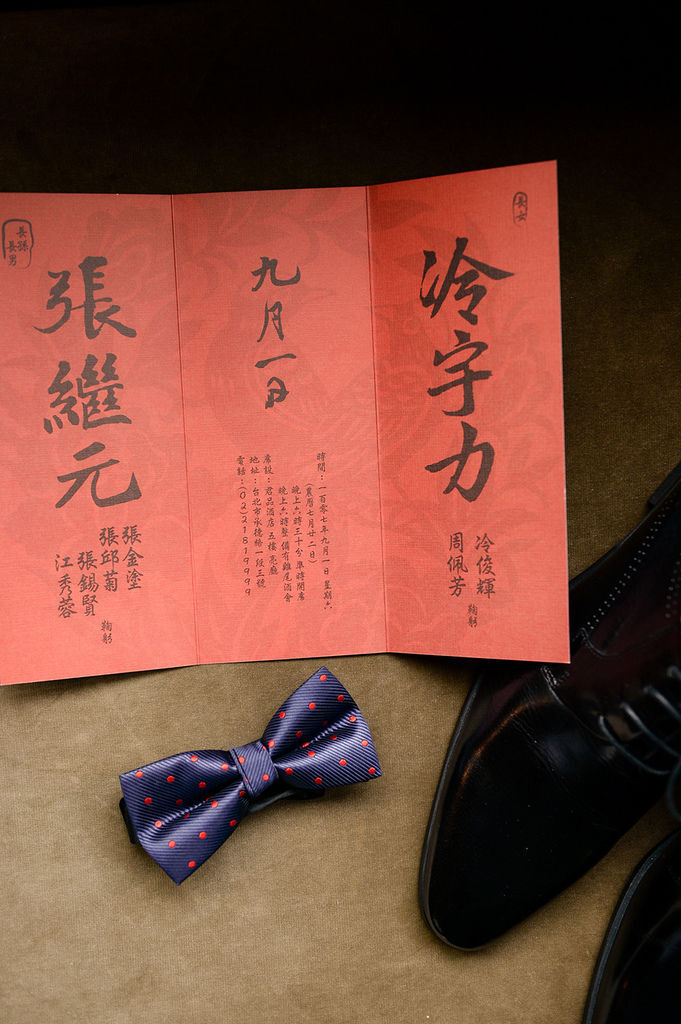 長女
冷宇力
冷俊輝
周佩芳
鞠躬
九月一日
時間：一百零七年九月一日 星期六
(農曆七月廿二日)
晚上六時三十分 準時開席
晚上六時整 備有雞尾酒會
席設：君品酒店 五樓 亮廳
地址：台北市承德路一段三號
電話：(02)21819999
長孫
長男
張繼元
張金塗
張邱菊
張錫賢
江秀蓉
鞠躬